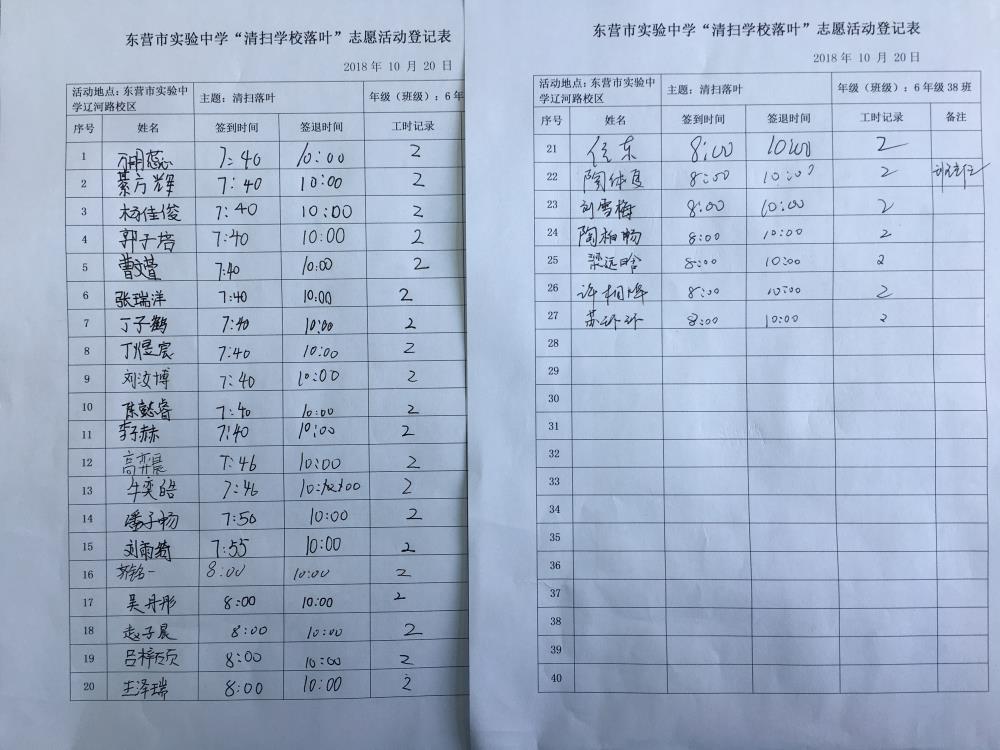 东营市实验中学“清扫学校落叶”志愿活动登记表
2018 年 10 月 20 日
活动地点：东营市实验中学辽河路校区 主题：清扫落叶 年级（班级）：6 年
序号 姓名 签到时间 签退时间 工时记录
1 7:40 10:00 2
2 綦方辉 7:40 10:00 2
3 杨佳俊 7:40 10:00 2
4 郭子培 7:40 10:00 2
5 曹文萱 7:40 10:00 2
6 张瑞洋 7:40 10:00 2
7 丁子鹤 7:40 10:00 2
8 丁煜宸 7:40 10:00 2
9 刘汶博 7:40 10:00 2
10 陈懿睿 7:40 10:00 2
11 李子赫 7:40 10:00 2
12 高弈宸 7:46 10:00 2
13 牛奕皓 7:46 10:00 2
14 潘子畅 7:50 10:00 2
15 刘雨绮 7:55 10:00 2
16 8:00 10:00 2
17 吴丹彤 8:00 10:00 2
18 赵子晨 8:00 10:00 2
19 吕梓硕 8:00 10:00 2
20 王泽瑞 8:00 10:00 2
东营市实验中学“清扫学校落叶”志愿活动登记表
2018 年 10 月 20 日
活动地点：东营市实验中学辽河路校区 主题：清扫落叶 年级（班级）：6 年级 38 班
序号 姓名 签到时间 签退时间 工时记录 备注
21 8:00 10:00 2
22 陶体夏 8:00 10:00 2
23 刘雪梅 8:00 10:00 2
24 陶相畅 8:00 10:00 2
25 梁远晗 8:00 10:00 2
26 许相峰 8:00 10:00 2
27 苏环环 8:00 10:00 2
28
29
30
31
32
33
34
35
36
37
38
39
40